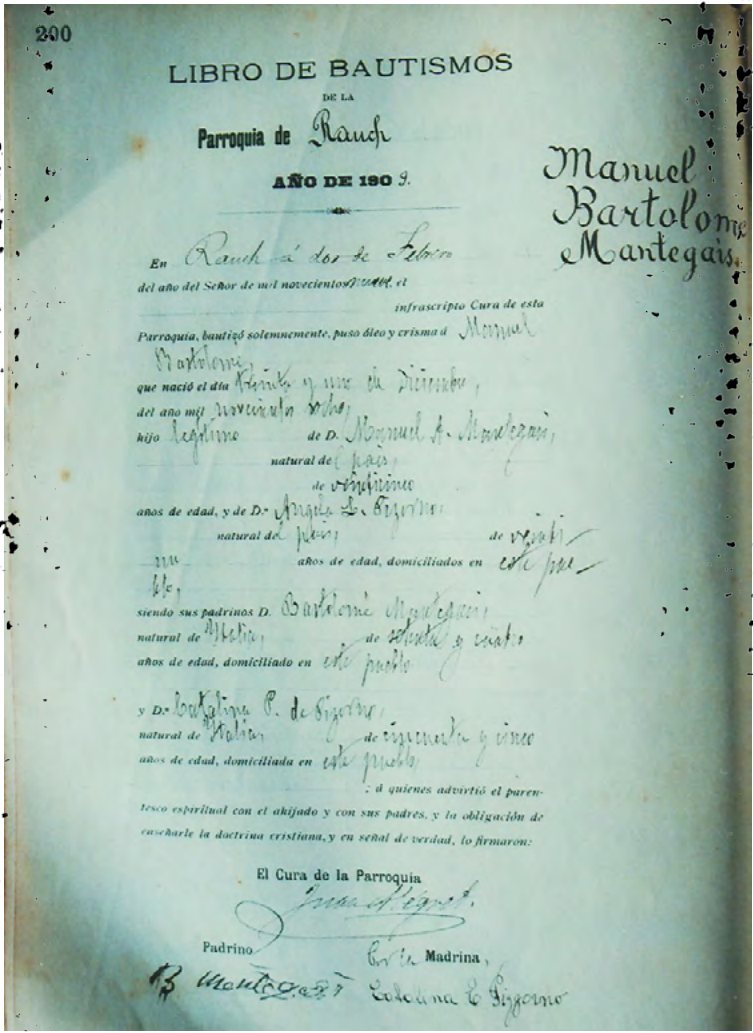 200
LIBRO DE BAUTISMOS
DE LA
Parroquia de Rauch
AÑO DE 1909.
Manuel
Bartolome
Mantegais.
En Rauch á dos de Febrero
del año del Señor de mil novecientos nueve, el
infrascripto Cura de esta
Parroquia, bautizó solemnemente, puso óleo y crisma á Manuel
Bartolomé,
que nació el día treinta y uno de Diciembre,
del año mil novecientos ocho,
hijo legítimo de D. Manuel A. Mantegais,
natural del pais,
de veinticinco
años de edad, y de D.ª Angela L. Pizorno,
natural del pais, de veinti-
un años de edad, domiciliados en este pue-
blo,
siendo sus padrinos D. Bartolomé Mantegais,
natural de Italia, de setenta y cuatro
años de edad, domiciliado en este pueblo
y D.ª Catalina P. de Pizorno,
natural de Italia, de cincuenta y cinco
años de edad, domiciliada en este pueblo,
: á quienes advirtió el paren-
tesco espiritual con el ahijado y con sus padres, y la obligación de
enseñarle la doctrina cristiana, y en señal de verdad, lo firmaron:
El Cura de la Parroquia
Juan
Padrino Por la Madrina,
B Catalina E Pizzorno